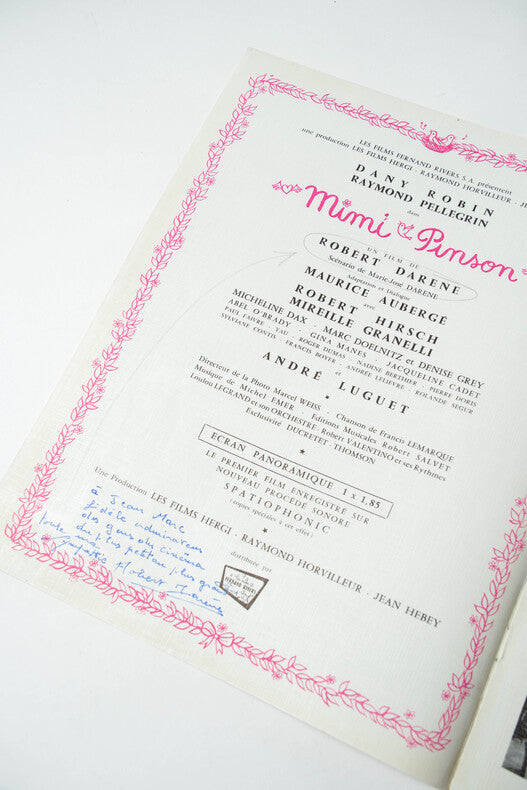 LES FILMS FERNAND RIVERS S.A. présentent
une production LES FILMS HERGI - RAYMOND HORVILLEUR - JE
DANY ROBIN
RAYMOND PELLEGRIN
dans
Mimi Pinson
UN FILM DE
ROBERT DARENE
Scénario de Marie-José DARENE
Adaptation et Dialogue
MAURICE AUBERGÉ
avec
ROBERT HIRSCH
MIREILLE GRANELLI
MICHELINE DAX - MARC DOELNITZ et DENISE GREY
ABEL O'BRADY - GINA MANES - JACQUELINE CADET
PAUL FAIVRE - YAU - ROGER DUMAS - NADINE BERTHIER - PIERRE DORIS
SYLVIANE CONTIS - FRANCIS BOYER - et ANDRÉE LELIEVRE - ROLANDE SEGUR
ANDRÉ LUGUET
Directeur de la Photo Marcel WEISS - Chanson de Francis LEMARQUE
Musique de Michel EMER - Editions Musicales Robert SALVET
Loulou LEGRAND et son ORCHESTRE - Robert VALENTINO et ses Rythmes
Exclusivité DUCRETET-THOMSON
ECRAN PANORAMIQUE 1 x 1,85
LE PREMIER FILM ENREGISTRÉ SUR
NOUVEAU PROCÉDÉ SONORE
SPATIOPHONIC
(copies spéciales à cet effet)
Une Production LES FILMS HERGI - RAYMOND HORVILLEUR - JEAN HEBEY
distribuée par
FERNAND RIVERS
à Jean Marc
fidèle admirateur
des gens du cinéma
du plus petit au plus grand
toute ma
sympathie Robert Darène